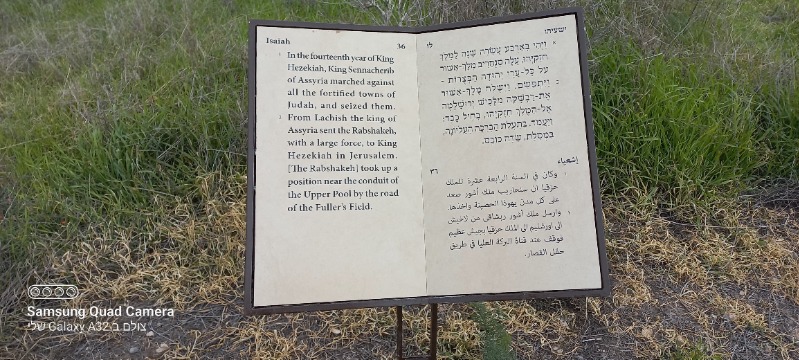 Isaiah 36
1 In the fourteenth year of King
Hezekiah, King Sennacherib
of Assyria marched against
all the fortified towns of
Judah, and seized them.
2 From Lachish the king of
Assyria sent the Rabshakeh,
with a large force, to King
Hezekiah in Jerusalem.
[The Rabshakeh] took up a
position near the conduit of
the Upper Pool by the road
of the Fuller's Field.
ישעיהו לו
א וַיְהִי בְּאַרְבַּע עֶשְׂרֵה שָׁנָה לַמֶּלֶךְ
חִזְקִיָּהוּ עָלָה סַנְחֵרִיב מֶלֶךְ-אַשּׁוּר
עַל כָּל-עָרֵי יְהוּדָה הַבְּצֻרוֹת
ב וַיִּתְפְּשֵׂם. וַיִּשְׁלַח מֶלֶךְ-אַשּׁוּר
אֶת-רַבְשָׁקֵה מִלָּכִישׁ יְרוּשָׁלְַמָה
אֶל-הַמֶּלֶךְ חִזְקִיָּהוּ, בְּחֵיל כָּבֵד;
וַיַּעֲמֹד, בִּתְעָלַת הַבְּרֵכָה הָעֶלְיוֹנָה,
בִּמְסִלַּת, שְׂדֵה כוֹבֵס.
إشعياء ٣٦
١ وكان في السنة الرابعة عشرة للملك
حزقيا ان سنحاريب ملك أشور صعد
على كل مدن يهوذا الحصينة واخذها.
وارسل ملك أشور ربشاقى من لاخيش
الى اورشليم الى الملك حزقيا بجيش عظيم
فوقف عند قناة البركة العليا في طريق
حقل القصار.
Samsung Quad Camera
צולם ב-Galaxy A32 שלי